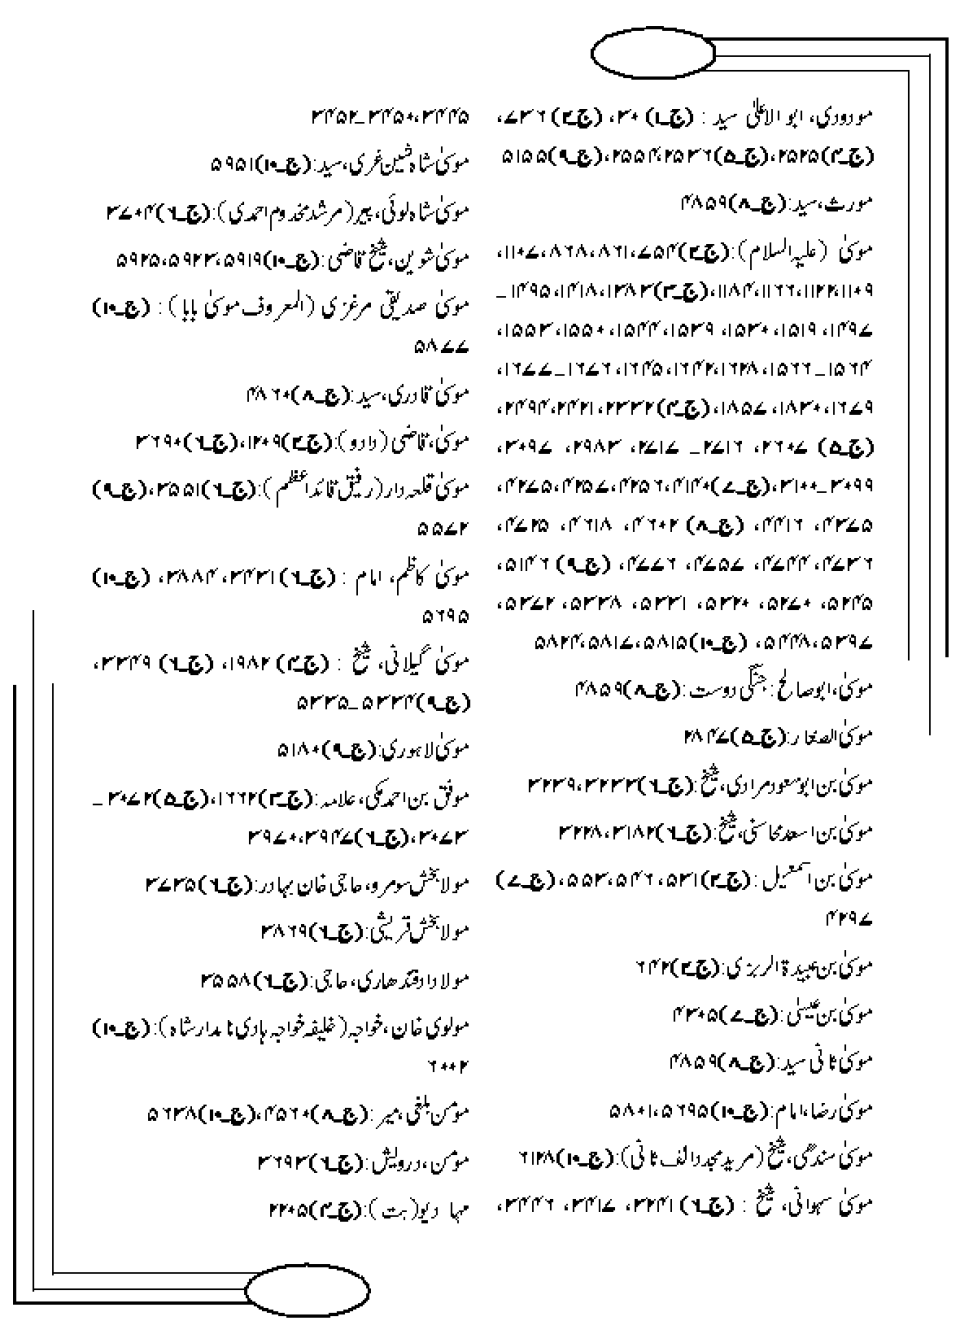 مودودی، ابو الاعلیٰ سید : (ج۔۱) ۳۰، (ج۔۲) ۷۳۶،
(ج۔۴)۲۵۲۵، (ج۔۵)۲۵۳۶، ۲۵۵۴، (ج۔۹)۵۱۵۵
مورث، سید: (ج۔۸)۴۸۵۹
موسیٰ (علیہ السلام): (ج۔۲)۷۵۴، ۸۶۱، ۸۶۸، ۱۱۰۷،
۱۱۰۹، ۱۱۲۲، ۱۱۶۶، ۱۱۸۴، (ج۔۳)۱۳۸۳، ۱۴۱۸، ۱۴۹۵۔
۱۴۹۷، ۱۵۱۹، ۱۵۳۰، ۱۵۳۹، ۱۵۴۴، ۱۵۵۰، ۱۵۵۳،
۱۵۶۴۔۱۵۶۶، ۱۶۲۸، ۱۶۴۲، ۱۶۴۵، ۱۶۷۶۔۱۶۷۷،
۱۶۷۹، ۱۸۳۰، ۱۸۵۷، (ج۔۴)۲۳۳۲، ۲۴۲۱، ۲۴۹۴،
(ج۔۵) ۲۶۰۷، ۲۷۱۶۔ ۲۷۱۷، ۲۹۸۳، ۳۰۹۷،
۳۰۹۹۔۳۱۰۰، (ج۔۷)۴۱۴۰، ۴۲۵۶، ۴۲۵۷، ۴۲۷۵،
۴۳۷۵، ۴۴۱۶، (ج۔۸) ۴۶۰۲، ۴۶۱۸، ۴۷۲۵،
۴۷۳۶، ۴۷۴۴، ۴۷۵۷، ۴۷۷۶، (ج۔۹) ۵۱۴۶،
۵۲۴۵، ۵۲۷۰، ۵۳۲۰، ۵۳۳۱، ۵۳۳۸، ۵۳۷۲،
۵۳۹۷، ۵۴۴۸، (ج۔۱۰)۵۸۱۵، ۵۸۱۷، ۵۸۲۴
موسیٰ، ابوصالح: جنگی دوست: (ج۔۸)۴۸۵۹
موسیٰ الصغار: (ج۔۵)۲۸۴۷
موسیٰ بن ابو سعود مرادی، شیخ: (ج۔۶)۳۲۳۳، ۳۲۳۹
موسیٰ بن اسعد محاسنی، شیخ: (ج۔۶)۳۱۸۲، ۳۲۲۸
موسیٰ بن اسمٰعیل: (ج۔۲)۵۳۱، ۵۴۶، ۵۵۳، (ج۔۷)
۴۲۹۷
موسیٰ بن عبیدۃ الربزی: (ج۔۲)۶۴۲
موسیٰ بن عیسیٰ: (ج۔۷)۴۳۰۵
موسیٰ ثانی سید: (ج۔۸)۴۸۵۹
موسیٰ رضا، امام: (ج۔۱۰)۵۶۹۵، ۵۸۰۱
موسیٰ سندگی، شیخ (مرید مجدد الف ثانی): (ج۔۱۰)۶۱۲۸
موسیٰ سہوانی، شیخ : (ج۔۶) ۳۲۴۱، ۳۴۱۷، ۳۴۴۶،
۳۴۴۵، ۳۴۵۰۔۳۴۵۲
موسیٰ شاہ شین غری، سید: (ج۔۱۰)۵۹۵۱
موسیٰ شاہ لوئی، پیر (مرشد مخدوم احمدی): (ج۔۶)۳۷۰۴
موسیٰ شوین، شیخ قاضی: (ج۔۱۰)۵۹۱۹، ۵۹۲۳، ۵۹۲۵
موسیٰ صدیقی مرغزی (المعروف موسیٰ بابا) : (ج۔۱۰)
۵۸۷۷
موسیٰ قادری، سید: (ج۔۸)۴۸۶۰
موسیٰ، قاضی (دادو): (ج۔۲)۱۲۰۹، (ج۔۶)۳۶۹۰
موسیٰ قلعہ دار (رفیق قائد اعظم): (ج۔۶)۳۵۵۱، (ج۔۹)
۵۵۷۲
موسیٰ کاظم، امام : (ج۔۶)۳۴۳۱، ۳۸۸۴، (ج۔۱۰)
۵۶۹۵
موسیٰ گیلانی، شیخ : (ج۔۴) ۱۹۸۲، (ج۔۶) ۳۳۴۹،
(ج۔۹)۵۳۳۴۔۵۳۳۵
موسیٰ لاہوری: (ج۔۹)۵۱۸۰
موفق بن احمد مکی، علامہ: (ج۔۳)۱۶۶۲، (ج۔۵)۳۰۷۲۔
۳۰۷۳، (ج۔۶)۳۹۴۷، ۳۹۷۰
مولا بخش سومرو، حاجی خان بہادر: (ج۔۶)۳۷۳۵
مولا بخش قریشی: (ج۔۶)۳۸۶۹
مولا داد قندھاری، حاجی: (ج۔۶)۳۵۵۸
مولوی خان، خواجہ (خلیفہ خواجہ ہادی نامدار شاہ): (ج۔۱۰)
۶۰۰۲
مؤمن بلخی، میر: (ج۔۸)۴۵۶۰، (ج۔۱۰)۵۶۳۸
مؤمن، درویش: (ج۔۶)۳۶۹۳
مہا دیو (بت): (ج۔۴)۲۲۰۵